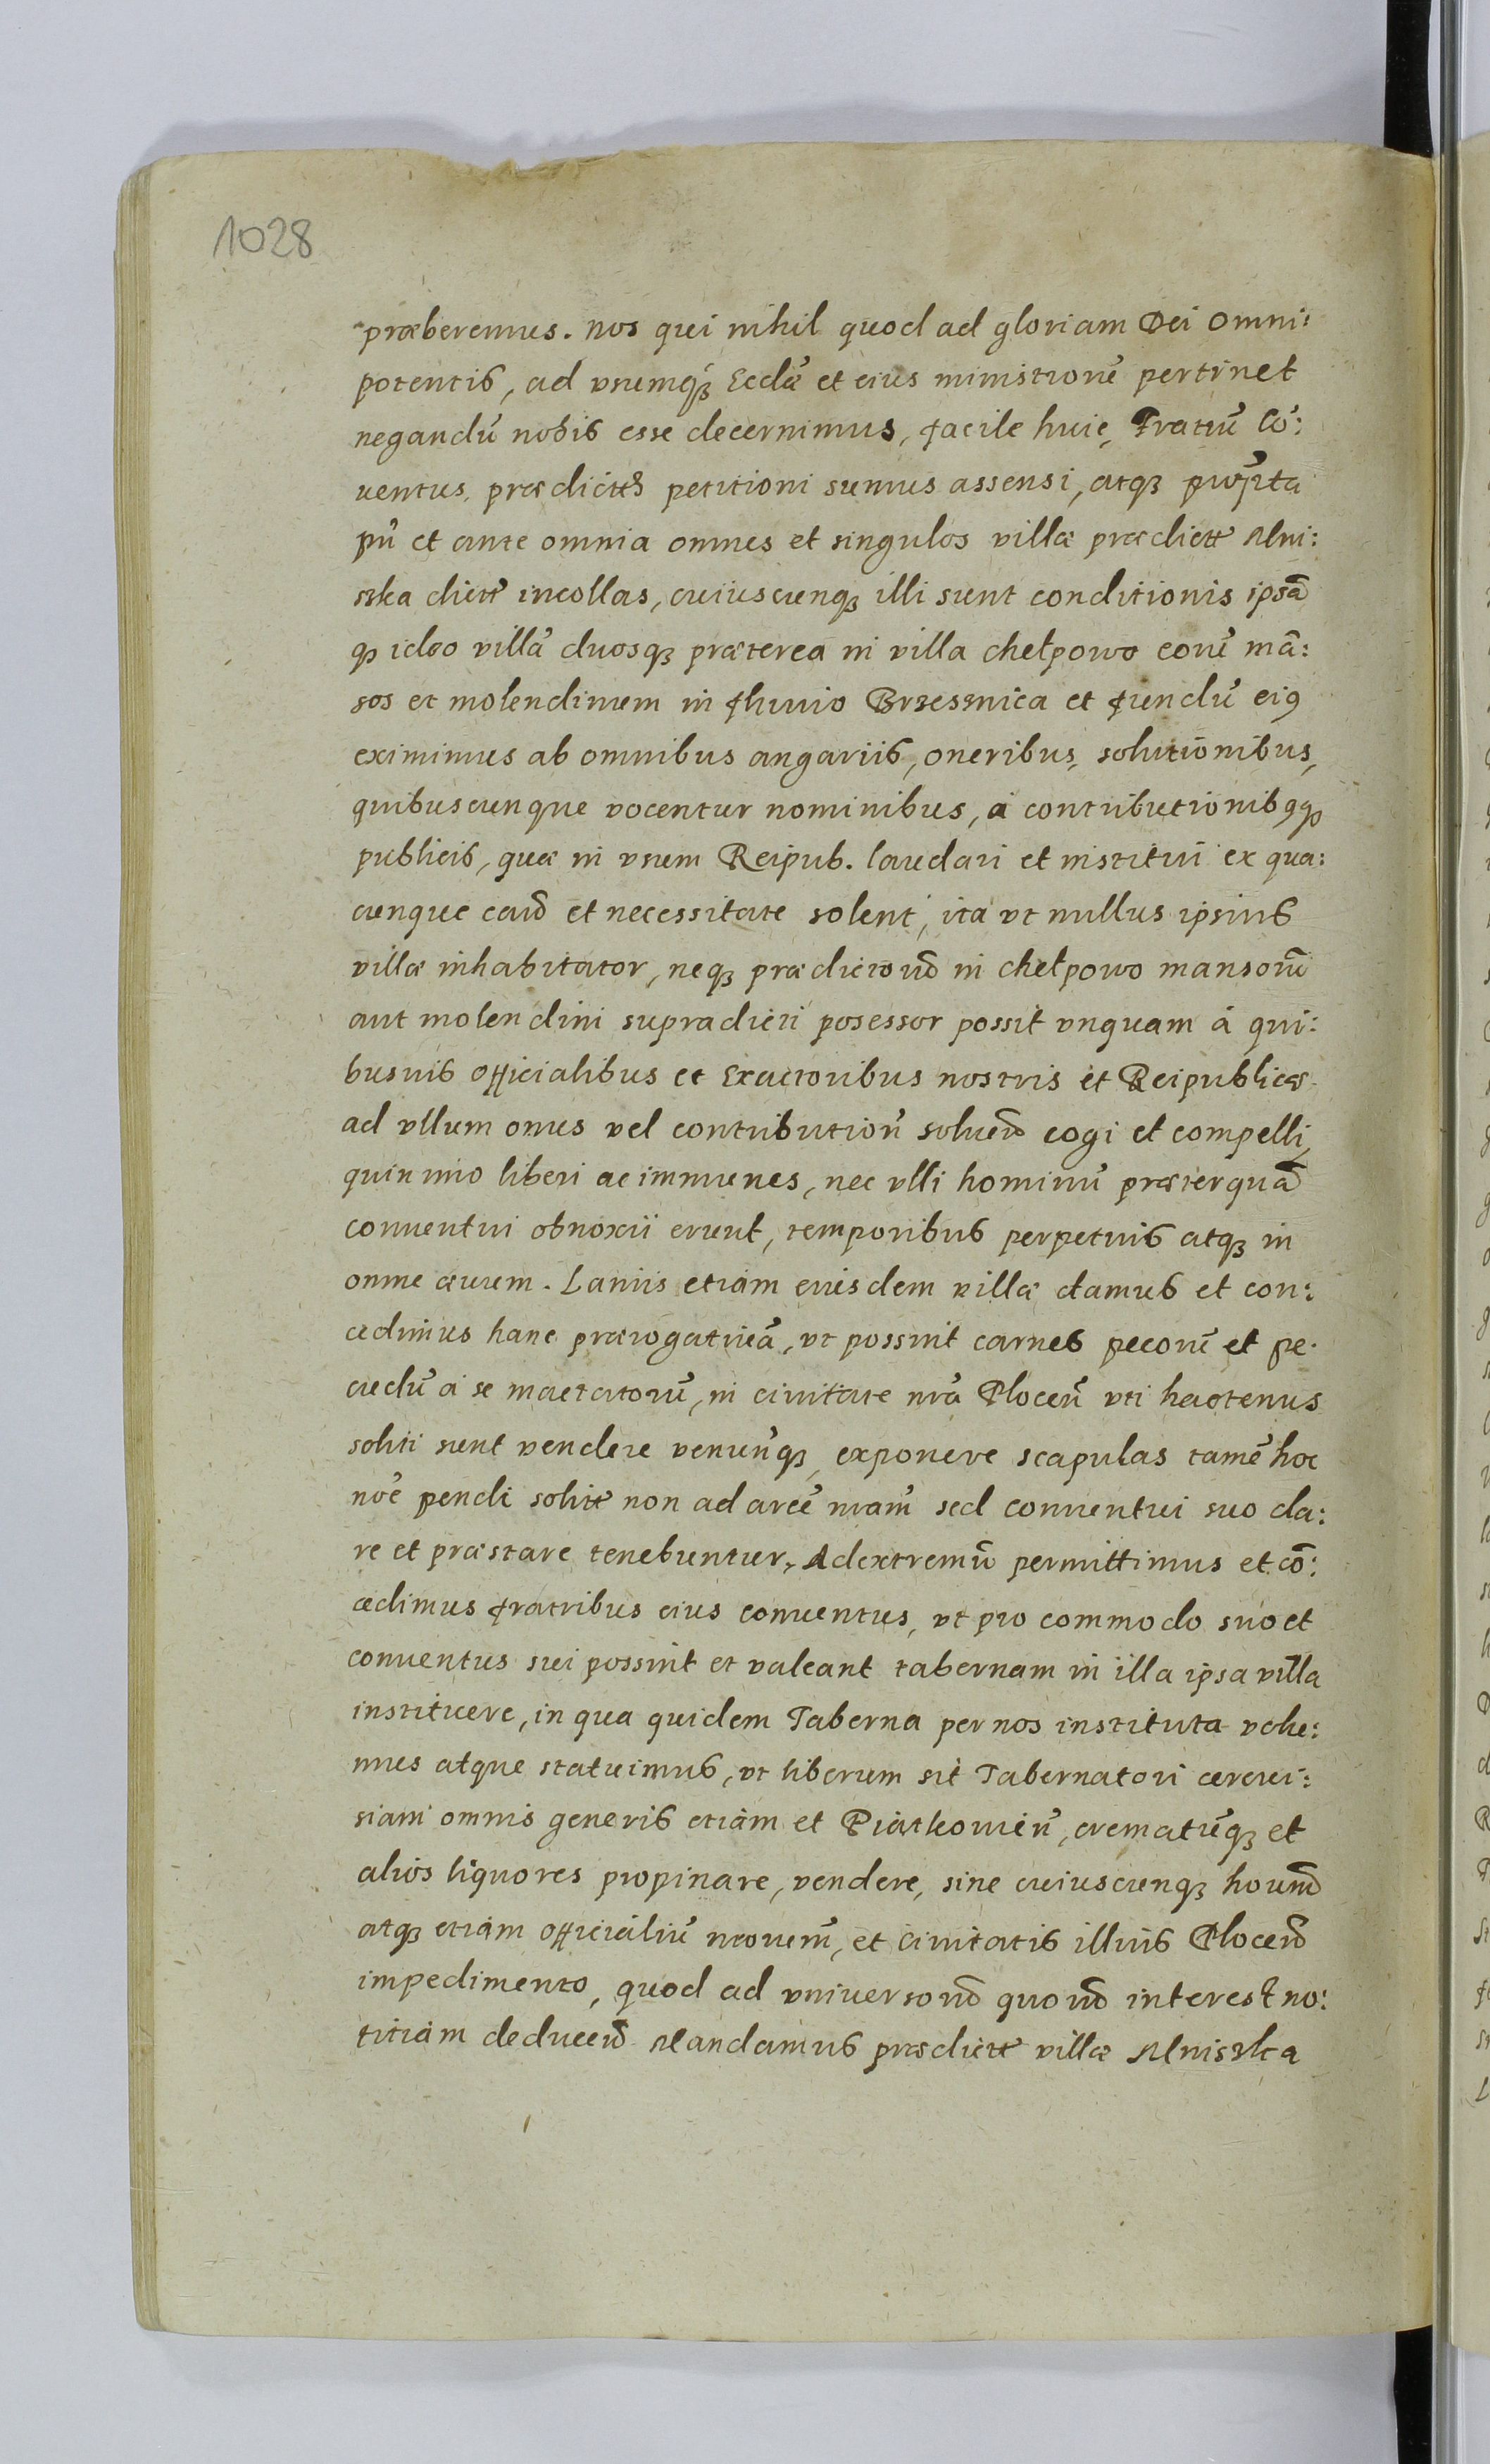 1028
præberemus. Nos qui nihil quod ad gloriam Dei Omni:
potentis, ad usumq́ꝫ Eccłæ et eius ministrorũ pertinet
negandũ nobis esse decernimus, facile huic, Fratrũ Cõ:
uentus, prædictæ petitioni sumus assensi, atqꝫ
pñ et ante omnia omnes et singulos villæ prædictæ Mni:
szka dictæ incollas, cuiuscunqꝫ illi sunt conditionis ipsã
qꝫ ideo villã duosqꝫ præterea in villa Chełpowo eorũ mã:
sos et molendinum in fluuio Brzesznica et fundũ eiꝰ
eximimus ab omnibus angariis, oneribus, solutionibus,
quibuscunque vocentur nominibus, á contributionibꝰqꝫ
publicis, quæ in vsum Reipub. laudari et institui ex qua:
cunque caũ et necessitate solent, ita vt nullus ipsius
villæ inhabitator, neqꝫ prædictorũ in Chełpowo mansorũ
aut molendini supradicti posessor possit vnquam á qui:
busuis officialibus et Exactoribus nostris et Reipublicæ
ad vllum onus vel contributionẽ soluend̃ cogi et compelli,
quin imo liberi ac immunes, nec vlli hominũ præterquã
conuentui obnoxii erunt, temporibus perpetuis atqꝫ in
omne æuum. Laniis etiam eiusdem villæ damus et con:
cedimus hanc prærogatiuã, vt possint carnes pecorũ et pe:
cudũ á se mactatorũ, in ciuitate nrã Plocen̄ vti hactenus
soliti sunt vendere venunqꝫ, exponere scapulas tamẽ hoc
noẽ pendi solitæ non ad arcẽ nrãm sed conuentui suo da:
re et præstare tenebuntur, Adextremũ permittimus et cõ:
cedimus fratribus eius conuentus, vt pro commodo suo et
conuentus sui possint et valeant tabernam in illa ipsa villa
instituere, in qua quidem Taberna per nos instituta volu:
mus atque statuimus, vt liberum sit Tabernatori cereui:
siam omnis generis etiam et Piatkouień, crematũqꝫ et
alios liquores propinare, vendere, sine cuiuscunqꝫ horum̃
atqꝫ etiam officialiũ nrorum̃, et ciuitatis illius Plocen̄
impedimento, quod ad vniuersorũ quorũ interest no:
titiam deducend̃ Mandamus prædictæ villæ Mniszka